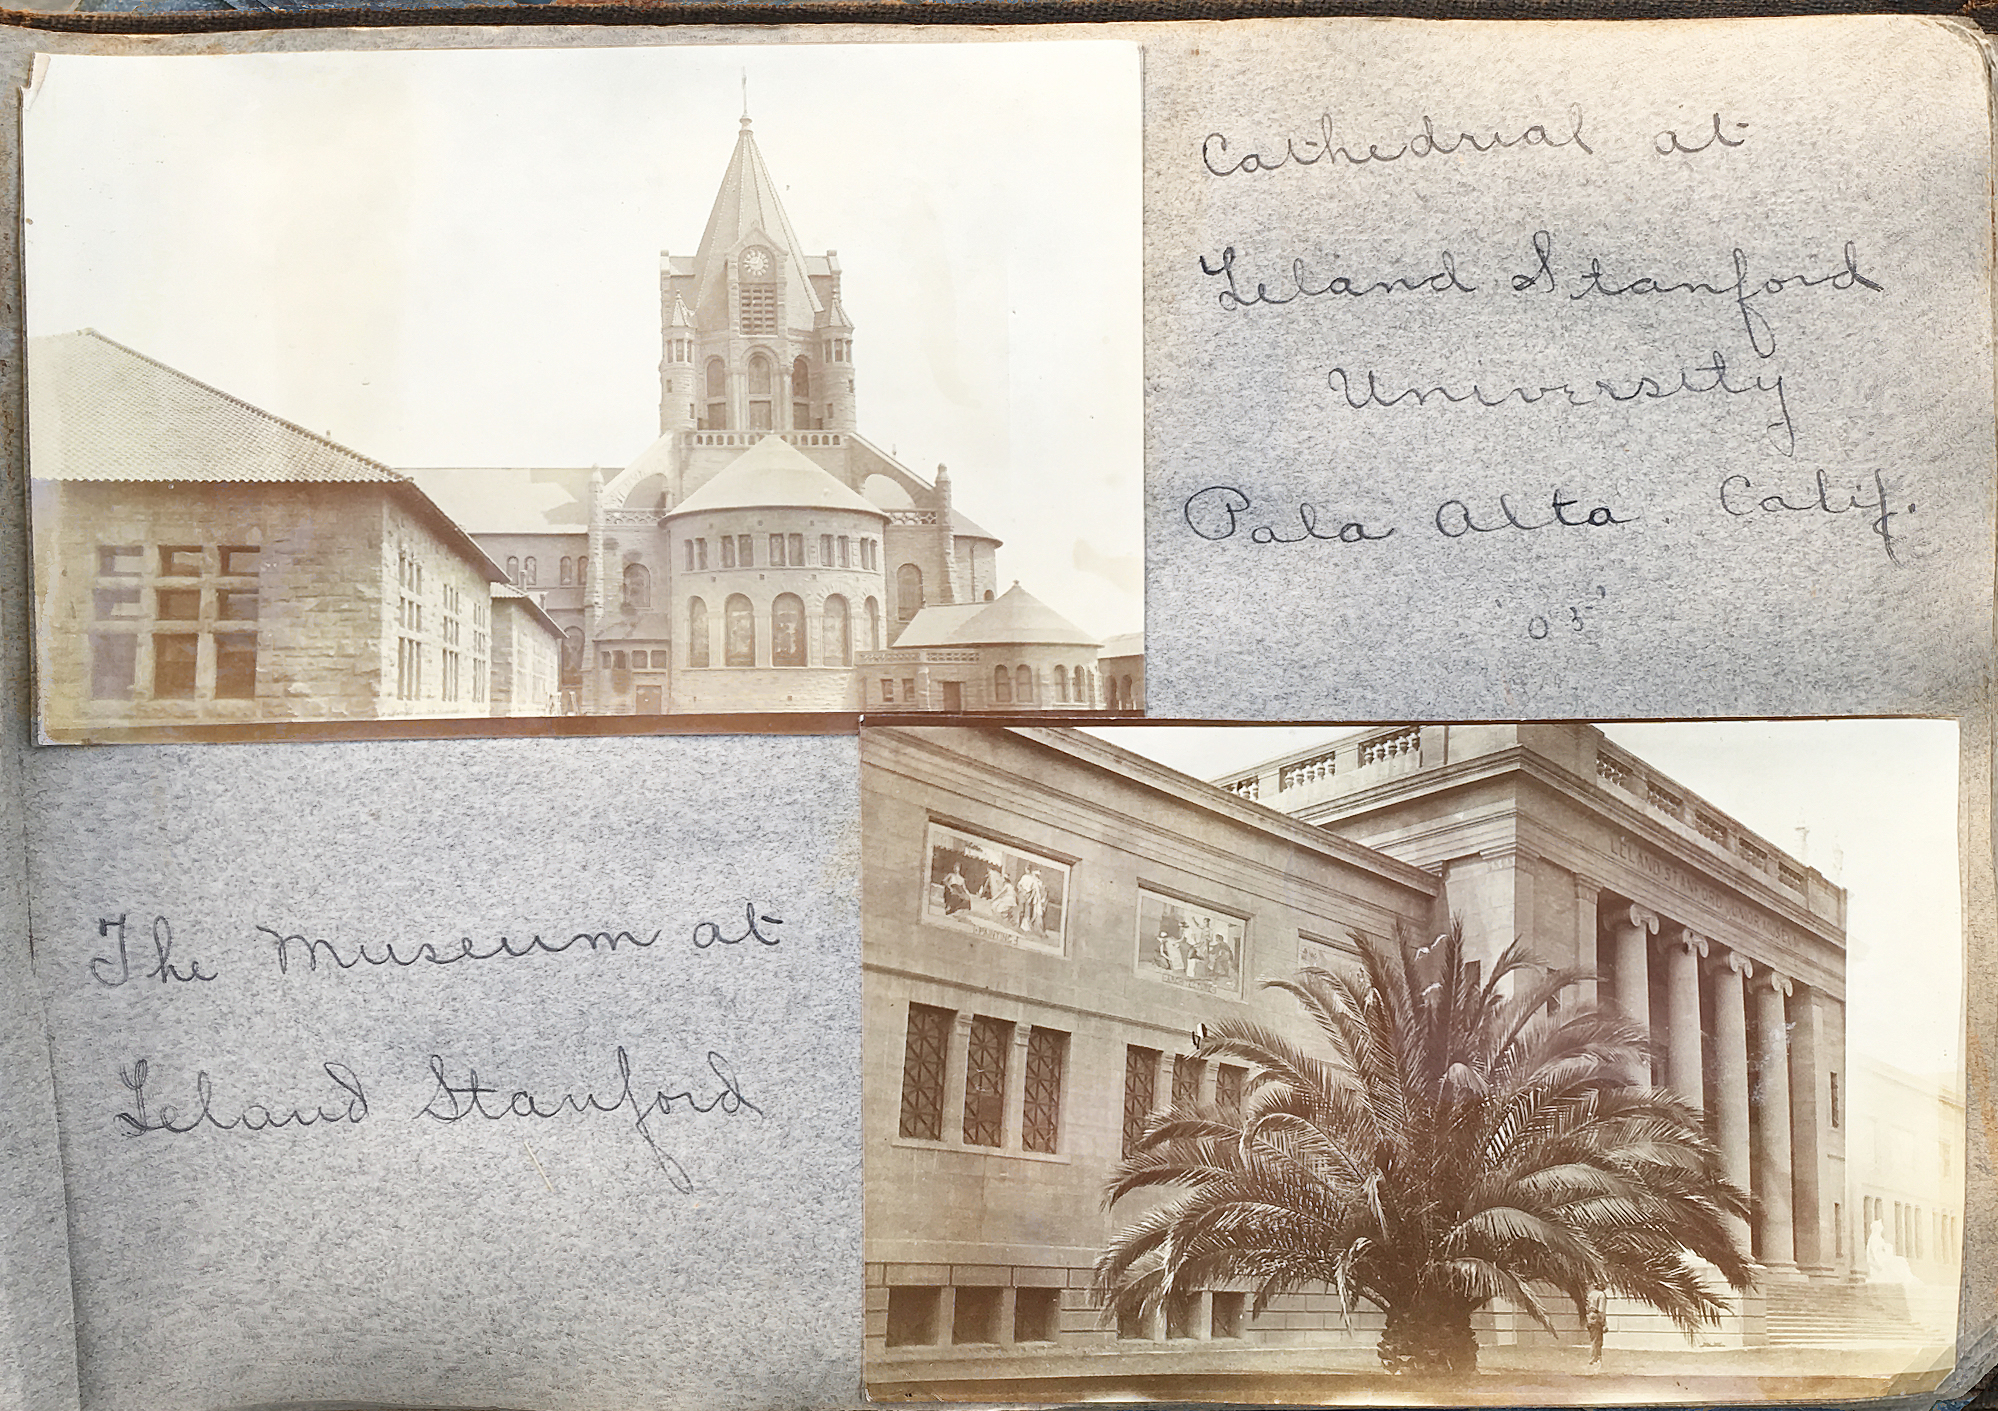 Cathedrial at
Leland Stanford
University
Pala Alta. Calif.
'03'
The Museum at
Leland Stanford
PAINTING
LELAND STANFORD JUNIOR MUSEUM